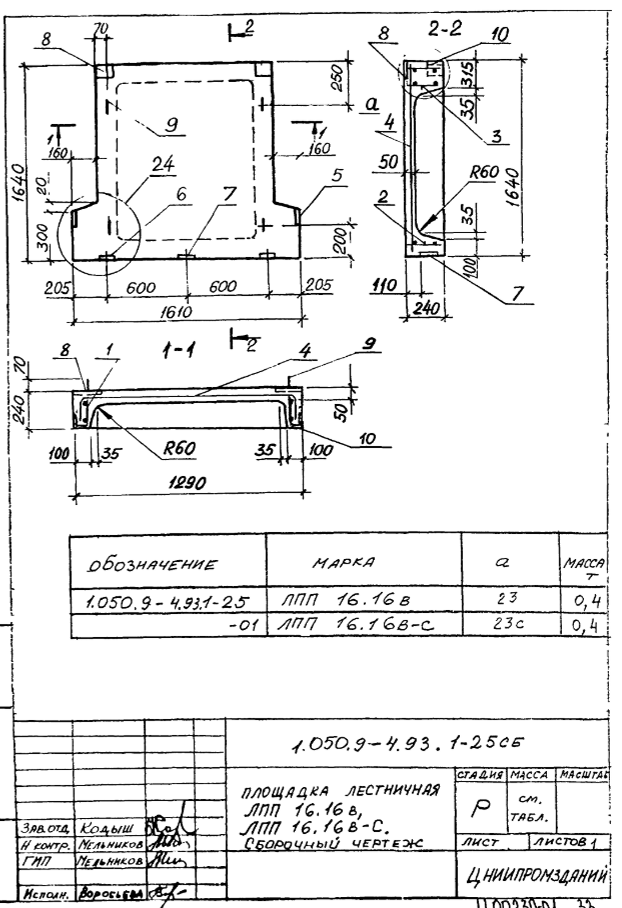 2
2-2
70
8
8
10
250
315
35
а
9
4
3
1
1
160
160
1640
1640
24
5
50
R60
20
6
7
2
35
300
200
100
205
600
600
205
110
7
1610
240
1-1
2
70
8
1
4
9
240
50
100
35
R60
35
100
10
1290
ОБОЗНАЧЕНИЕ МАРКА а МАССА Т
1.050.9-4.93.1-25 ЛПП 16.16в 23 0,4
-01 ЛПП 16.16в-С 23с 0,4
1.050.9-4.93.1-25СБ
ПЛОЩАДКА ЛЕСТНИЧНАЯ
ЛПП 16.16в,
ЛПП 16.16в-С.
СБОРОЧНЫЙ ЧЕРТЕЖ
СТАДИЯ МАССА МАСШТАБ
Р СМ. ТАБЛ.
ЛИСТ ЛИСТОВ 1
ЦНИИПРОМЗДАНИЙ
ЗАВ.ОТД. КОДЫШ
Н КОНТР. МЕЛЬНИКОВ
ГИП МЕЛЬНИКОВ
Исполн. Воробьева